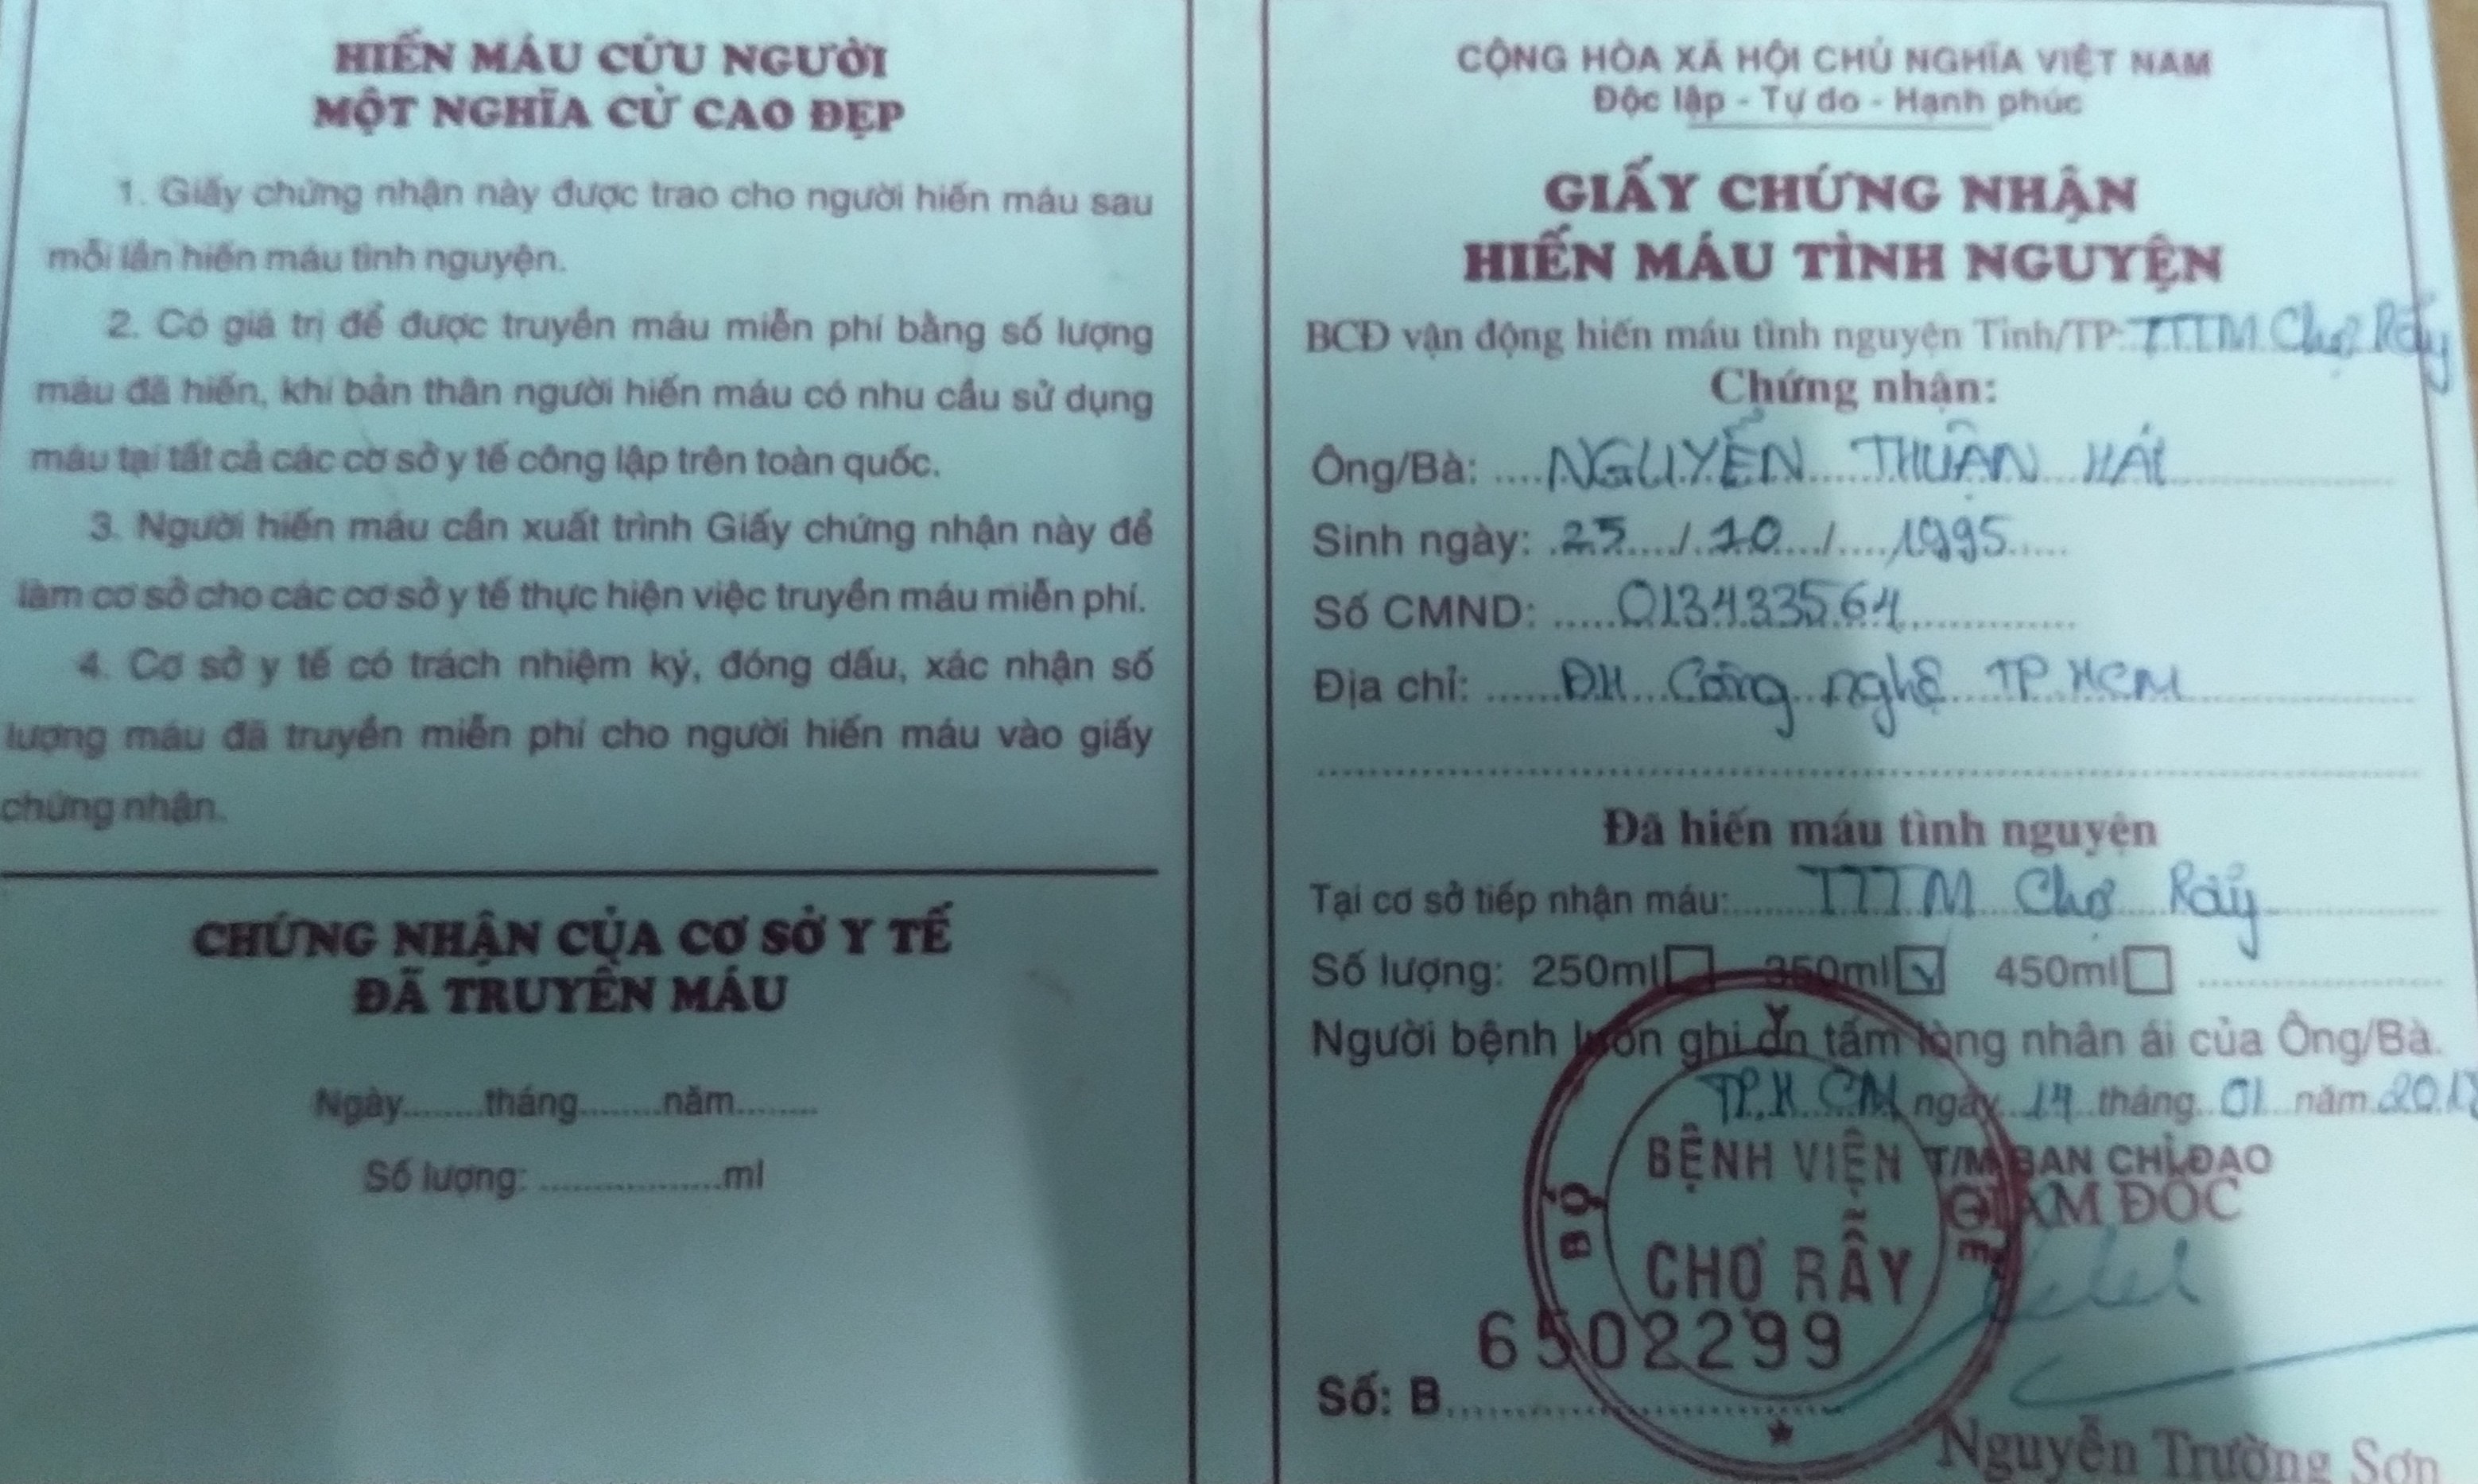 HIẾN MÁU CỨU NGƯỜI
MỘT NGHĨA CỬ CAO ĐẸP
1. Giấy chứng nhận này được trao cho người hiến máu sau
mỗi lần hiến máu tình nguyện.
2. Có giá trị để được truyền máu miễn phí bằng số lượng
máu đã hiến, khi bản thân người hiến máu có nhu cầu sử dụng
máu tại tất cả các cơ sở y tế công lập trên toàn quốc.
3. Người hiến máu cần xuất trình Giấy chứng nhận này để
làm cơ sở cho các cơ sở y tế thực hiện việc truyền máu miễn phí.
4. Cơ sở y tế có trách nhiệm ký, đóng dấu, xác nhận số
lượng máu đã truyền miễn phí cho người hiến máu vào giấy
chứng nhận.
CHỨNG NHẬN CỦA CƠ SỞ Y TẾ
ĐÃ TRUYỀN MÁU
Ngày........tháng........năm........
Số lượng: ..................ml
CỘNG HÒA XÃ HỘI CHỦ NGHĨA VIỆT NAM
Độc lập - Tự do - Hạnh phúc
GIẤY CHỨNG NHẬN
HIẾN MÁU TÌNH NGUYỆN
BCĐ vận động hiến máu tình nguyện Tỉnh/TP: TTTM Chợ Rẫy
Chứng nhận:
Ông/Bà: NGUYỄN THUẬN HẢI
Sinh ngày: 25 / 10 / 1995
Số CMND: 013433564
Địa chỉ: ĐH Công nghệ TP. HCM
Đã hiến máu tình nguyện
Tại cơ sở tiếp nhận máu: TTTM Chợ Rẫy
Số lượng: 250ml 350ml 450ml
Người bệnh luôn ghi ơn tấm lòng nhân ái của Ông/Bà.
TP.HCM ngày 14 tháng 01 năm
T/M BAN CHỈ ĐẠO
GIÁM ĐỐC
BỘ Y TẾ
BỆNH VIỆN
CHỢ RẪY
6502299
Số: B
Nguyễn Trường Sơn